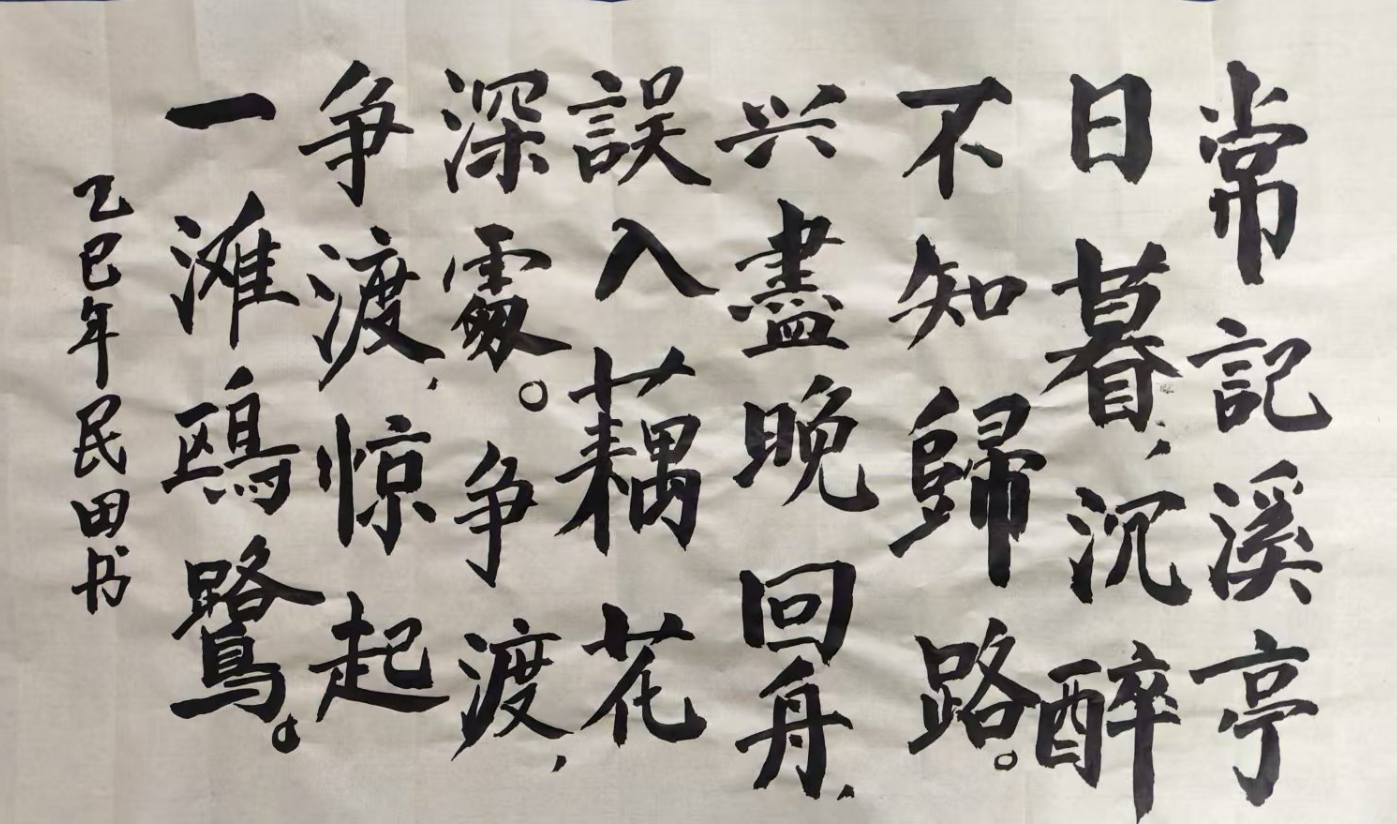 常記溪亭
日暮,沉醉
不知歸路。
兴盡晚回舟,
誤入藕花
深處。争渡,
争渡,惊起
一滩鷗鷺。
乙巳年民田书